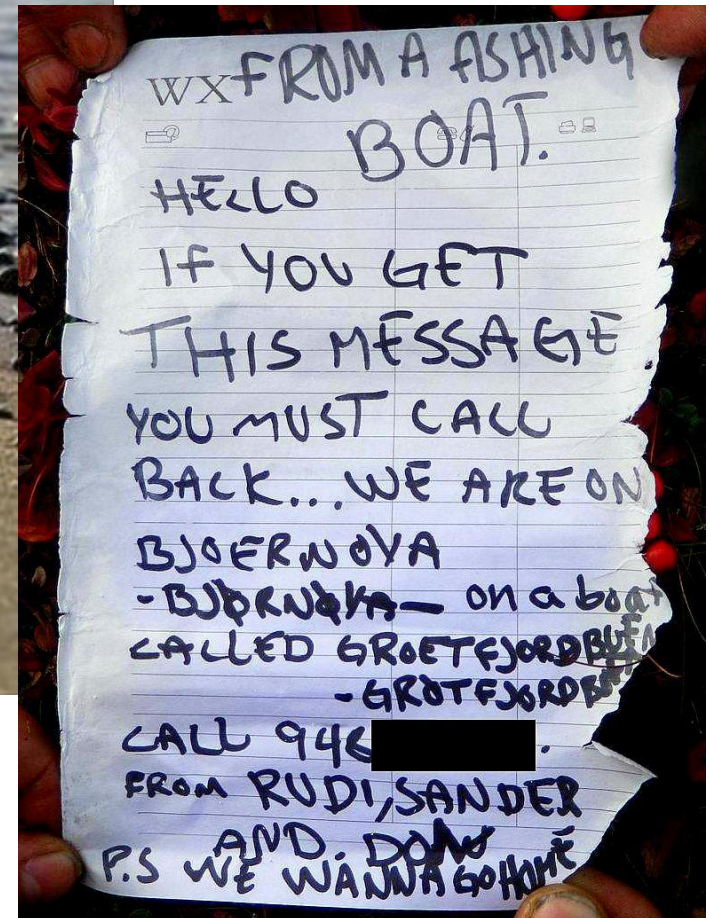 WX FROM A FISHING
BOAT.
HELLO
IF YOU GET
THIS MESSAGE
YOU MUST CALL
BACK... WE ARE ON
BJOERNOYA
-BJØRNØYA- on a boat
CALLED GROETFJORDBUEN
-GRØTFJORDBU
CALL 946
FROM RUDI, SANDER
AND. DON
P.S WE WANNA GO HOME